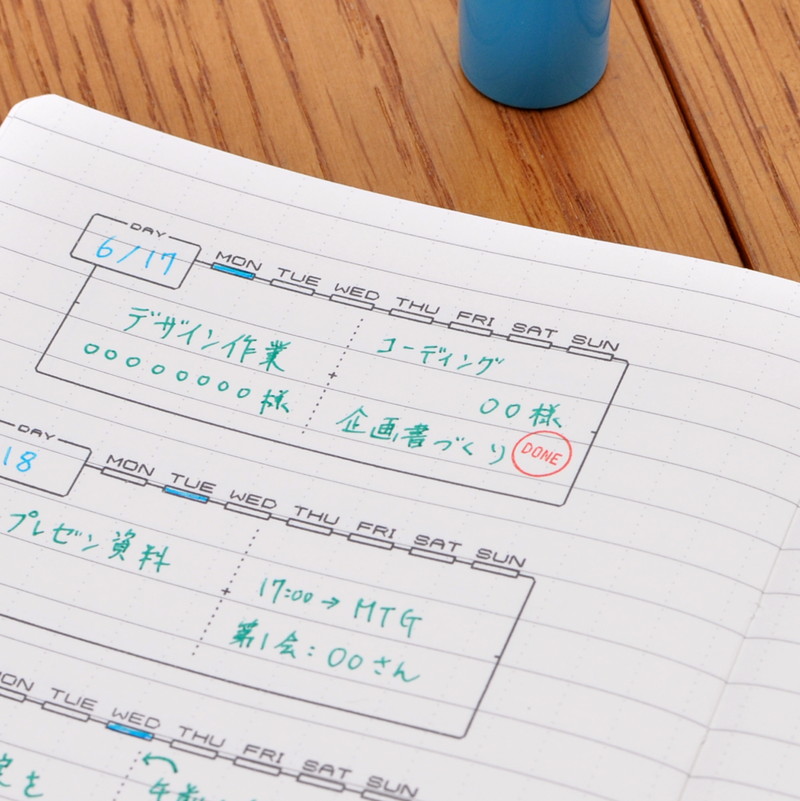 DAY
6/17
MON TUE WED THU FRI SAT SUN
デザイン作業
○○○○○○○○様
コーディング
○○様
企画書づくり
DONE
DAY
18
MON TUE WED THU FRI SAT SUN
プレゼン資料
17:00→MTG
第1会:○○さん
TUE WED THU FRI SAT SUN
を